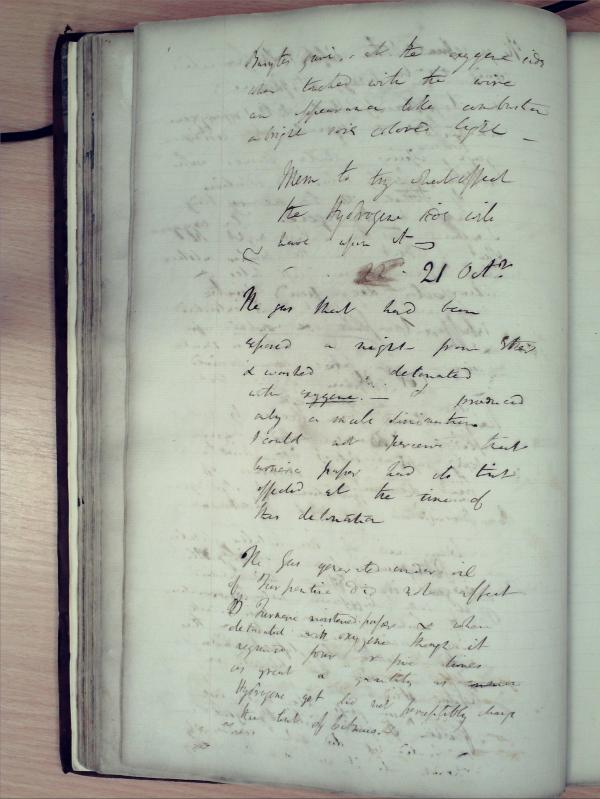 Barytes gave at the oxygene side
when touched with the wire
an appearance like combustion
a bright rose colored light –
Mem to try what effect
the Hydrogene side will
have upon it –
21 Octr
The gas that had been
exposed a night
& washed detonated
with oxygene. – it produced
only a small diminution
I could not perceive that
turmeric paper had its tint
affected at the time of
this detonation
The gas generated under oil
of Turpentine did not affect
Turmeric moistened paper & when
detonated with oxygene though it
required four or five times
as great a quantity as
Hydrogene yet did not perceptibly change
the tint of